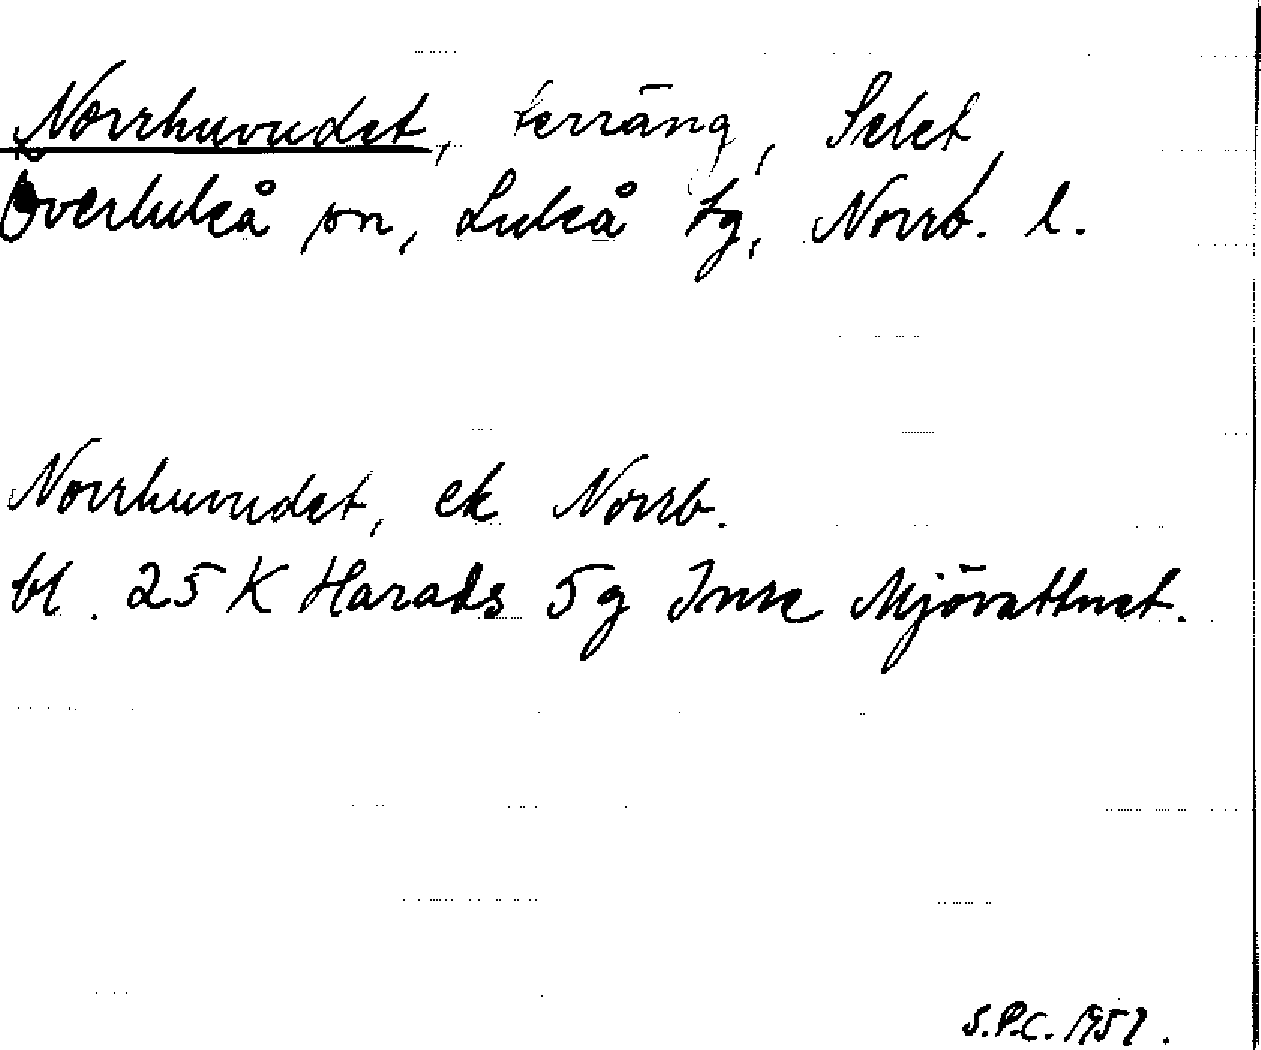 Norrhuvudet, terräng, Selet,
Överluleå sn, Luleå tg, Norrb. l.
Norrhuvudet, ek Norrb.
bl. 25 K Harads 5 g Inre Mjövattnet.
S.P.C. 1957.